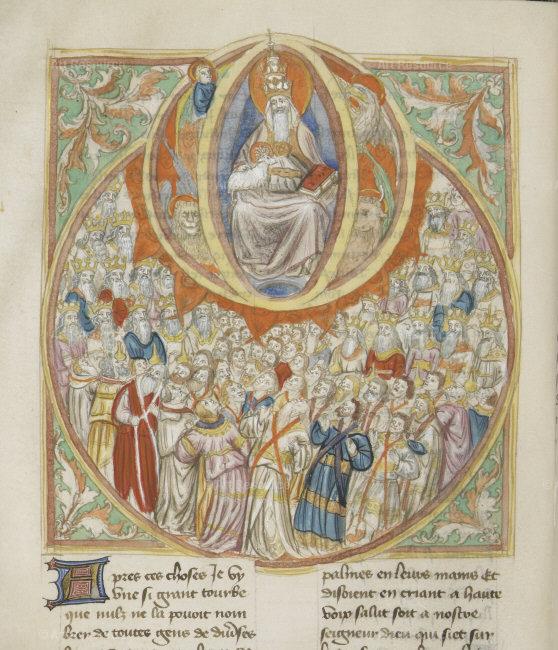 Apres ces choses Je vy
vne si grant tourbe
que nulz ne la povoit nom
brer de toutes gens de diuses
palmes en leurs mains Et
disoient en criant a haulte
voix salut soit a nostre
seigneur dieu qui siet sur